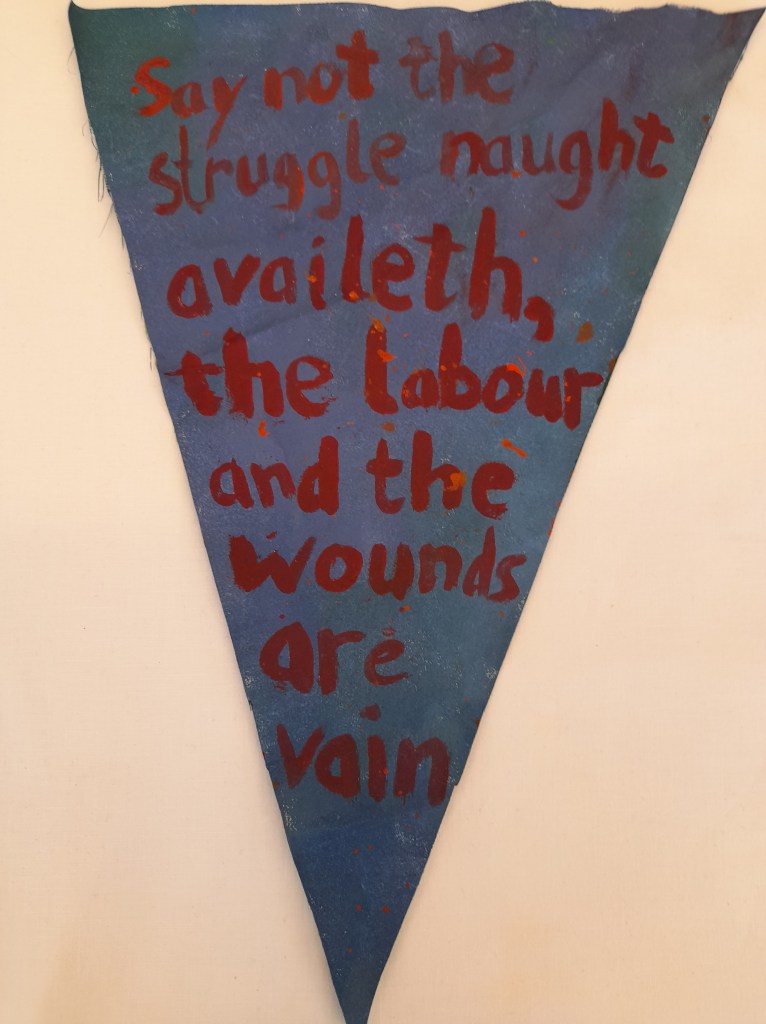 Say not the
struggle naught
availeth,
the labour
and the
wounds
are
vain